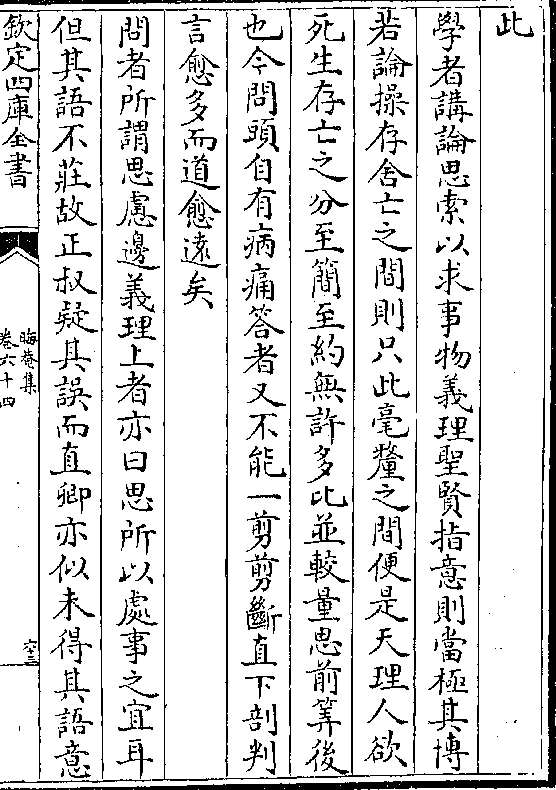 此
學者講論思索以求事物義理聖賢指意則當極其博
若論操存舍亡之間則只此毫釐之間便是天理人欲
死生存亡之分至簡至約無許多比並較量思前筭後
也今問頭自有病痛答者又不能一剪剪斷直下剖判
言愈多而道愈遠矣
問者所謂思慮邊義理上者亦曰思所以處事之宜耳
但其語不莊故正叔疑其誤而直卿亦似未得其語意
欽定四庫全書
晦菴集
卷六十四